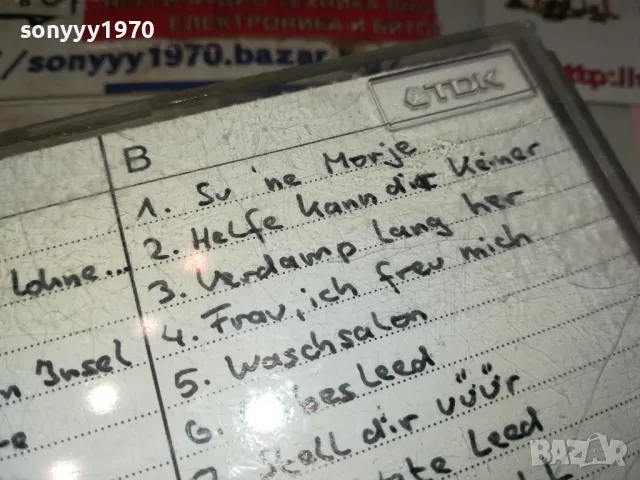 sonyyy1970
ЕЛЕКТРОНИКА И БИТОВ
/sonyyy1970.bazar
http://
TDK
B
1. Su 'ne Morje
2. Helfe kann dir keiner
3. Verdamp lang her
4. Frau, ich freu mich
5. Waschsalon
6. besleed
Stell dir vüüür
leed
Lohne...
n Insel
BAZAR